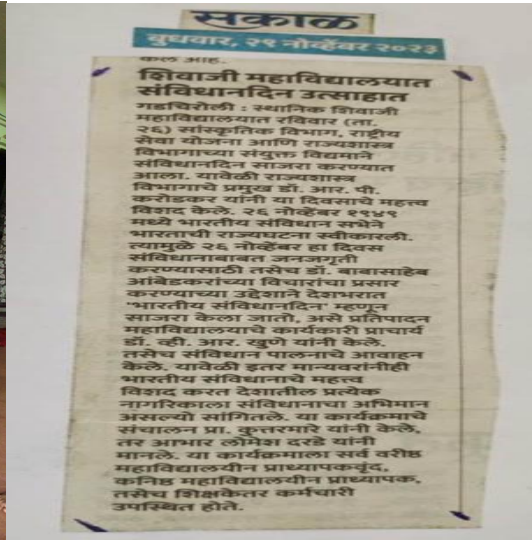 सकाळ
बुधवार, २९ नोव्हेंबर २०२३
केले आहे.
शिवाजी महाविद्यालयात
संविधानदिन उत्साहात
गडचिरोली : स्थानिक शिवाजी
महाविद्यालयात रविवार (ता.
२६) सांस्कृतिक विभाग, राष्ट्रीय
सेवा योजना आणि राज्यशास्त्र
विभागाच्या संयुक्त विद्यमाने
संविधानदिन साजरा करण्यात
आला. यावेळी राज्यशास्त्र
विभागाचे प्रमुख डॉ. आर. पी.
करोडकर यांनी या दिवसाचे महत्त्व
विशद केले. २६ नोव्हेंबर १९४९
मध्ये भारतीय संविधान सभेने
भारताची राज्यघटना स्वीकारली.
त्यामुळे २६ नोव्हेंबर हा दिवस
संविधानाबाबत जनजागृती
करण्यासाठी तसेच डॉ. बाबासाहेब
आंबेडकरांच्या विचारांचा प्रसार
करण्याच्या उद्देशाने देशभरात
'भारतीय संविधानदिन' म्हणून
साजरा केला जातो, असे प्रतिपादन
महाविद्यालयाचे कार्यकारी प्राचार्य
डॉ. व्ही. आर. खुणे यांनी केले.
तसेच संविधान पालनाचे आवाहन
केले. यावेळी इतर मान्यवरांनीही
भारतीय संविधानाचे महत्त्व
विशद करत देशातील प्रत्येक
नागरिकाला संविधानाचा अभिमान
असल्याे सांगितले. या कार्यक्रमाचे
संचालन प्रा. कुत्तरमारे यांनी केले,
तर आभार लोमेश दरडे यांनी
मानले. या कार्यक्रमाला सर्व वरीष्ठ
महाविद्यालयीन प्राध्यापकवृंद,
कनिष्ठ महाविद्यालयीन प्राध्यापक,
तसेच शिक्षकेतर कर्मचारी
उपस्थित होते.